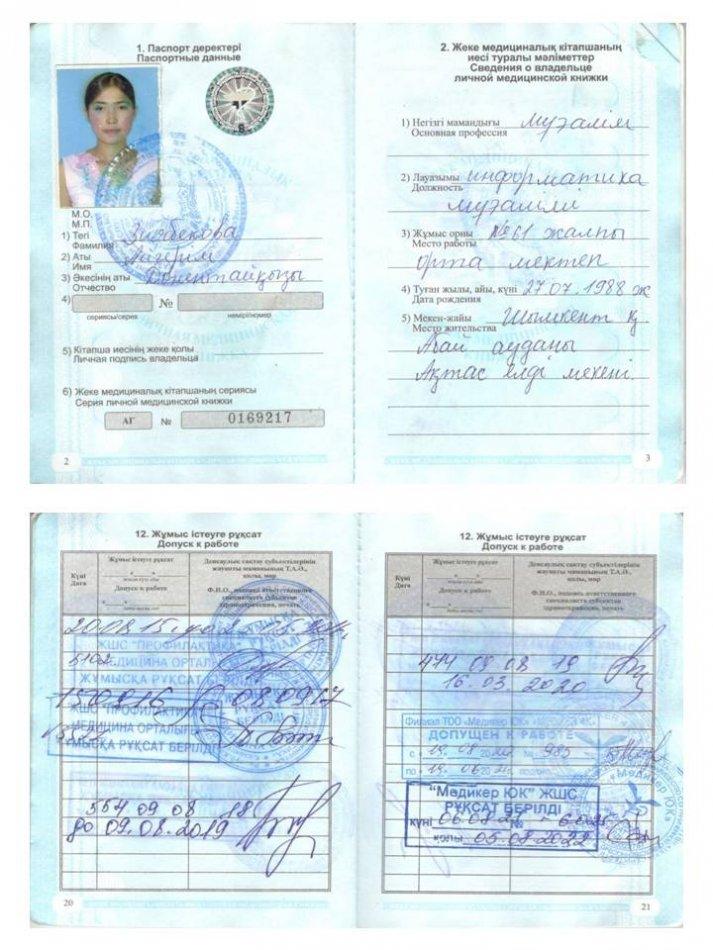 1. Паспорт деректері
Паспортные данные
М.О.
М.П.
1) Тегі
Фамилия
2) Аты Айгерим
Имя
3) Әкесінің аты
Отчество
4) №
сериясы/серия нөмірі/номер
5) Кітапша иесінің жеке қолы
Личная подпись владельца
6) Жеке медициналық кітапшаның сериясы
Серия личной медицинской книжки
АГ № 0169217
2
2. Жеке медициналық кітапшаның
иесі туралы мәліметтер
Сведения о владельце
личной медицинской книжки
1) Негізгі мамандығы мұғалім
Основная профессия
2) Лауазымы информатика
Должность мұғалімі
3) Жұмыс орны №61 жалпы
Место работы
орта мектеп
4) Туған жылы, айы, күні 27.07.1988 ж
Дата рождения
5) Мекен-жайы Шымкент қ
Место жительства
Абай ауданы
Ақтас елді мекені.
3
12. Жұмыс істеуге рұқсат
Допуск к работе
Күні
Дата
Жұмыс істеуге рұқсат
Допуск к работе
Денсаулық сақтау субъектілерінің
жауапты маманының Т.А.Ә.,
қолы, мөр
Ф.И.О., подпись ответственного
специалиста субъектов
здравоохранения, печать
ЖШС "ПРОФИЛАКТИКА"
МЕДИЦИНА ОРТАЛЫҒЫ
ЖҰМЫСҚА РҰҚСАТ БЕРІЛДІ
ЖШС "ПРОФИЛАКТИКА"
МЕДИЦИНА ОРТАЛЫҒЫ
ЖҰМЫСҚА РҰҚСАТ БЕРІЛДІ
554 09 08 18
до 09.08.2019
20
12. Жұмыс істеуге рұқсат
Допуск к работе
Күні
Дата
Жұмыс істеуге рұқсат
Допуск к работе
Денсаулық сақтау субъектілерінің
жауапты маманының Т.А.Ә.,
қолы, мөр
Ф.И.О., подпись ответственного
специалиста субъектов
здравоохранения, печать
474 08 08 19
16.03 2020
Филиал ТОО «Медикер ЮК»
ДОПУЩЕН К РАБОТЕ
с 14 08 20 № 985
по 14 20
"Медикер ЮК" ЖШС
РҰҚСАТ БЕРІЛДІ
күні 06.08 21 №
қолы 05.08 2022
21